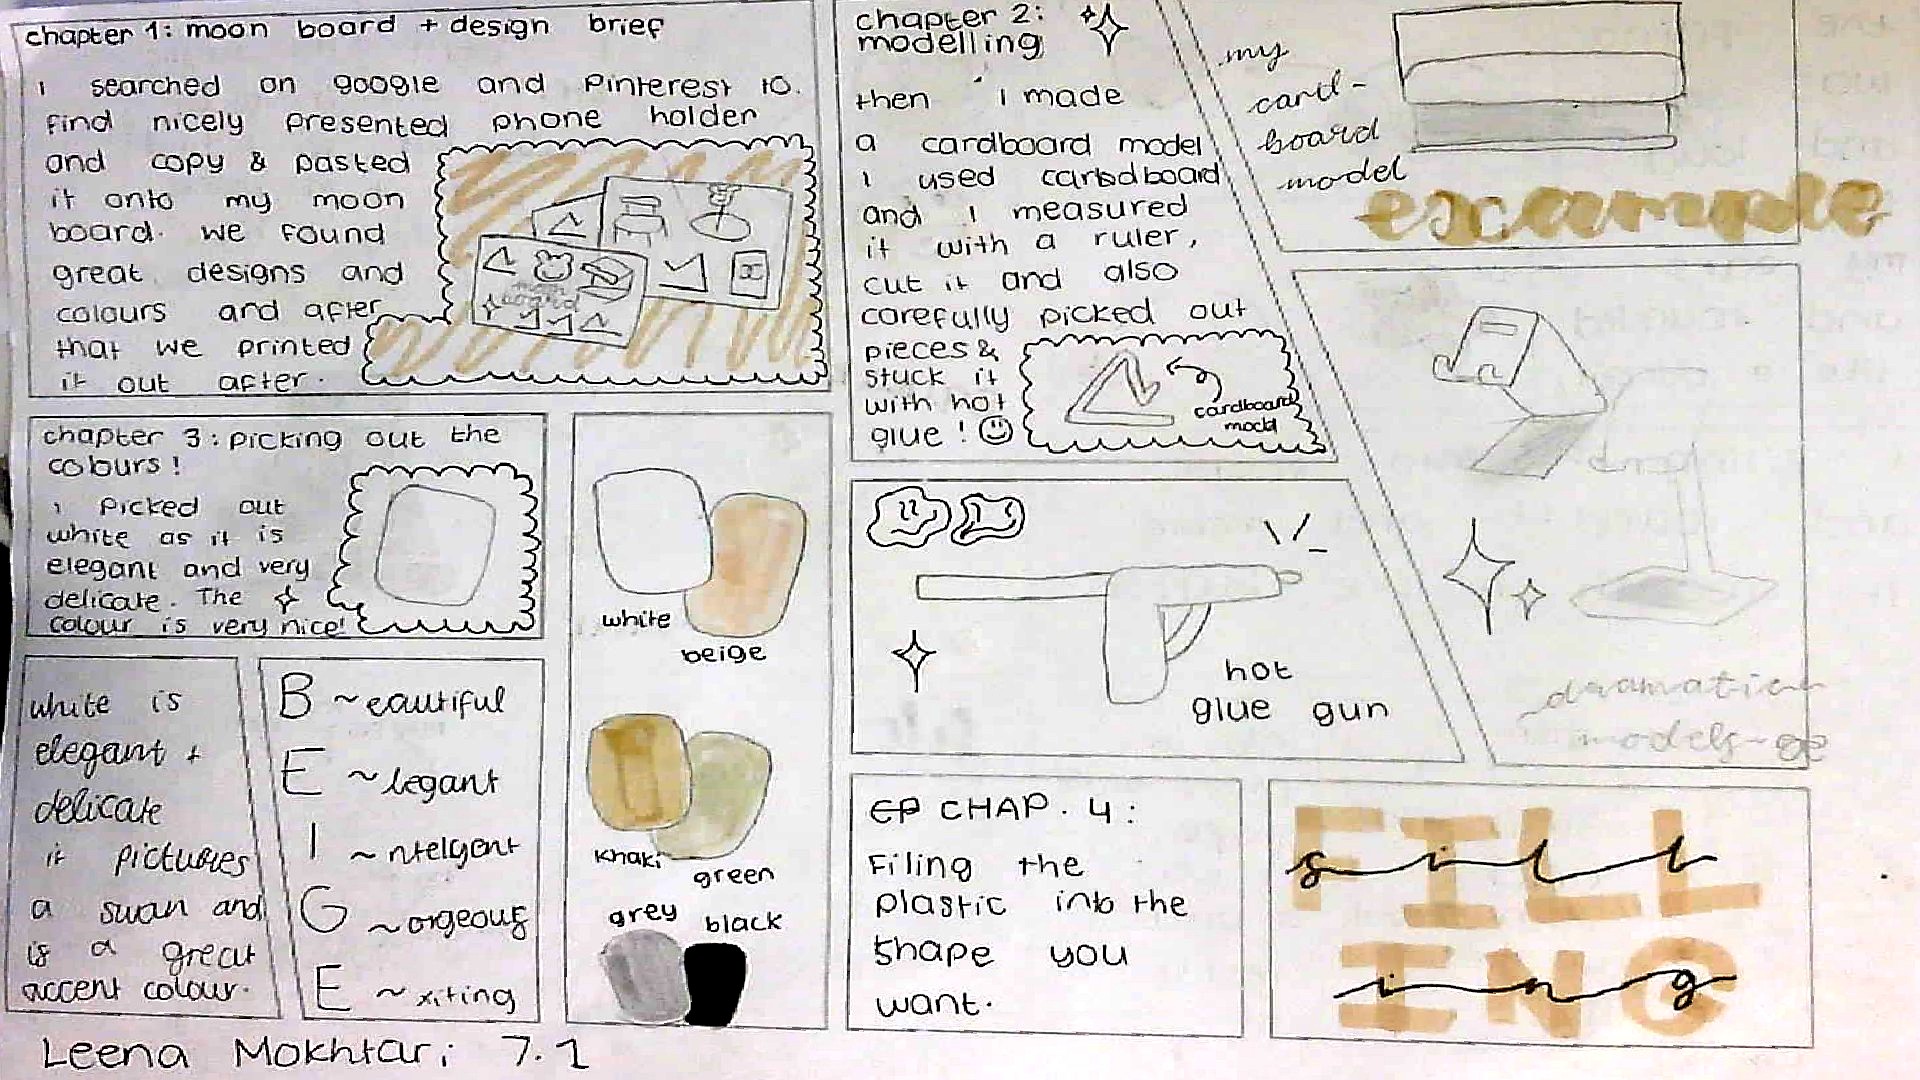 chapter 1: moon board + design brief
i searched on google and Pinterest to.
find nicely presented phone holder
and copy & pasted
it onto my moon
board. we found
great designs and
colours and after
that we printed
it out after.
moon
board
chapter 2:
modelling
then i made
a cardboard model
i used cardboard
and i measured
it with a ruler,
cut it and also
carefully picked out
pieces &
stuck it
with hot
glue!
cardboard
model
my
card-
board
model
example
chapter 3: picking out the
colours!
i Picked out
white as it is
elegant and very
delicate. The
colour is very nice!
white
beige
khaki
green
grey black
hot
glue gun
dramatic
models
white is
elegant +
delicate
it pictures
a swan and
is a great
accent colour.
B ~eautiful
E ~legant
I ~ntelgent
G ~orgeous
E ~xiting
CHAP. 4:
Filing the
plastic into the
shape you
want.
FILL
ING
Leena Mokhtari 7.1